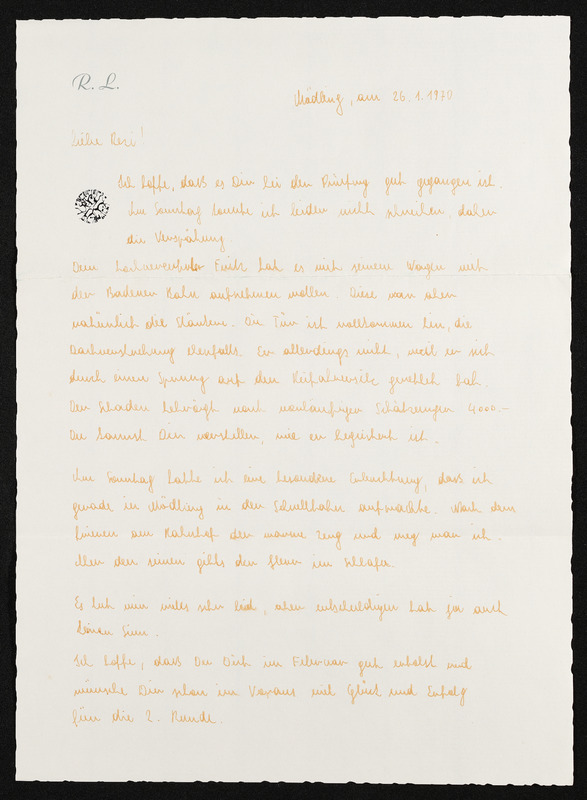 R. L.
Mödling, am 26.1.1970
Liebe Resi!
Ich hoffe, daß es Dir bei der Prüfung gut gegangen ist.
Am Sonntag konnte ich leider nicht schreiben, daher
die Verspätung.
Dem hat es mit seinem Wagen mit
der Badener Bahn aufnehmen wollen. Diese war aber
natürlich die Stärkere. Die Tür ist vollkommen hin, die
Dachverstrebung ebenfalls. Er allerdings nicht, weil er sich
durch einen Sprung auf den gerettet hat.
Der Schaden beträgt nach vorläufigen Schätzungen 4000.-
Du kannst Dir vorstellen, wie er begeistert ist.
Am Sonntag hatte ich eine besondere Erleuchtung, daß ich
gerade in Mödling in der Schnellbahn aufwachte. Nach dem
am Bahnhof der und weg war ich.
den seinen gibts der Herr im Schlafe.
Es tut mir sehr leid, aber entschuldigen hat ja auch
keinen Sinn.
Ich hoffe, daß Du Dich im Februar gut erholst und
wünsche Dir schon im Voraus viel Glück und Erfolg
für die 2. Runde.